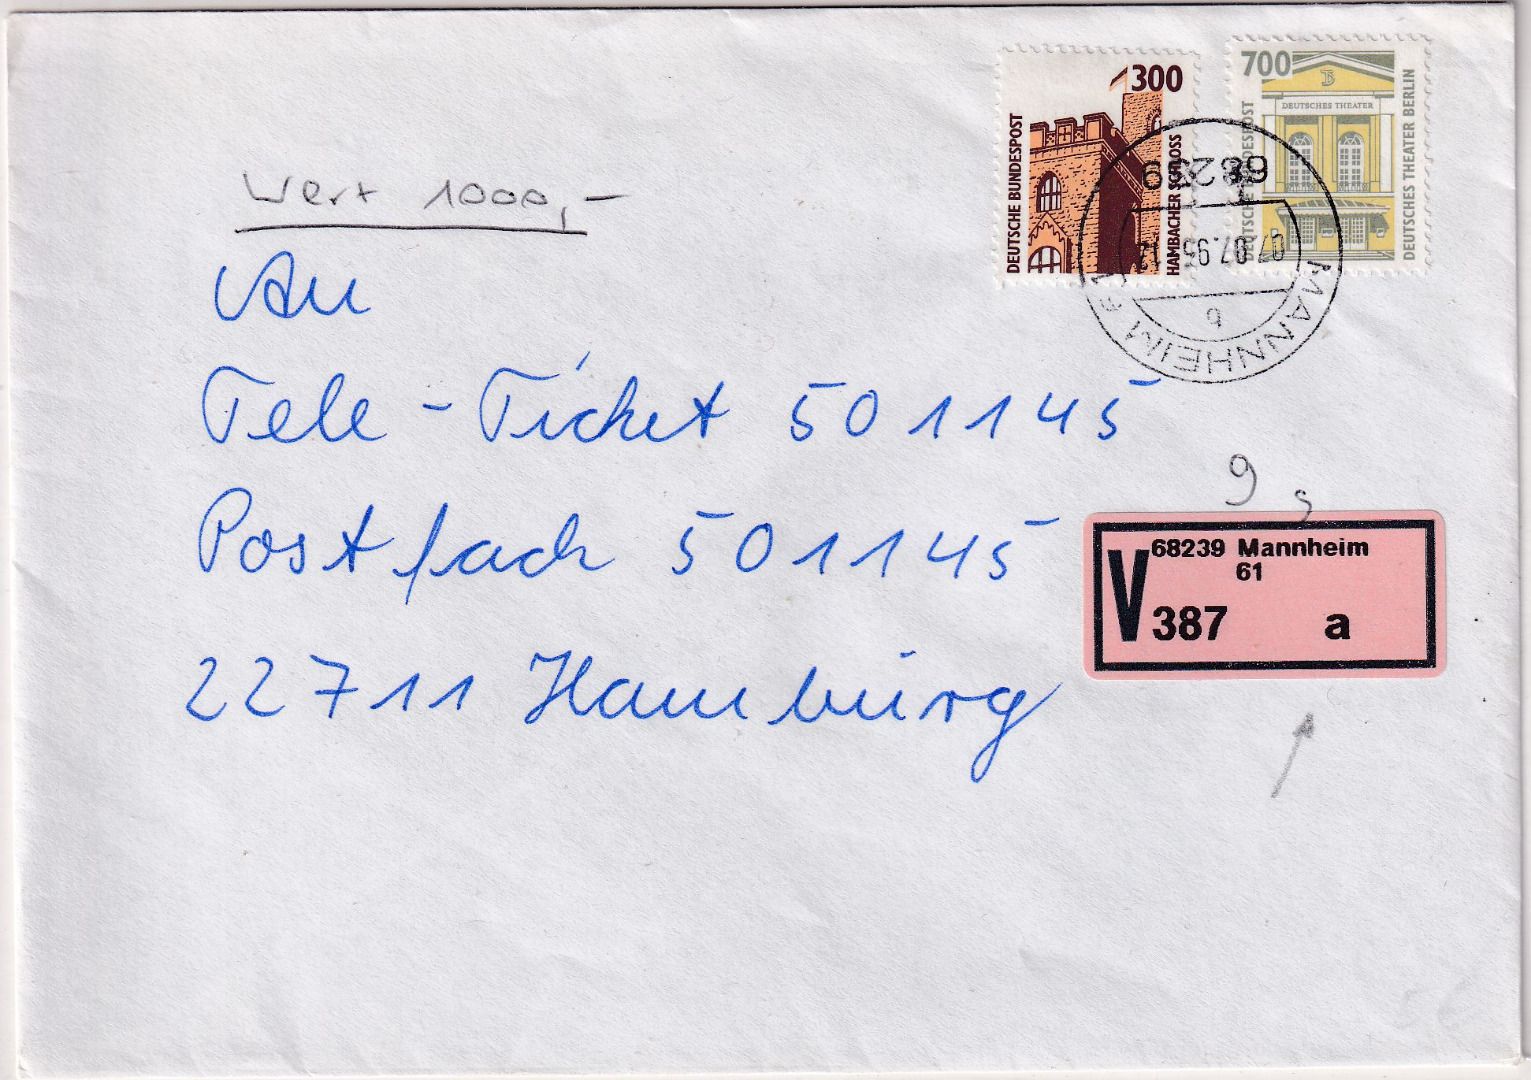 300
DEUTSCHE BUNDESPOST
HAMBACHER SCHLOSS
700
DEUTSCHES THEATER
DEUTSCHE BUNDESPOST
DEUTSCHES THEATER BERLIN
68239
07.07.95
b
MANNHEIM
Wert 1000,-
An
Tele-Ticket 501145
Postfach 501145
22711 Hamburg
9 g
V
68239 Mannheim
61
387 a